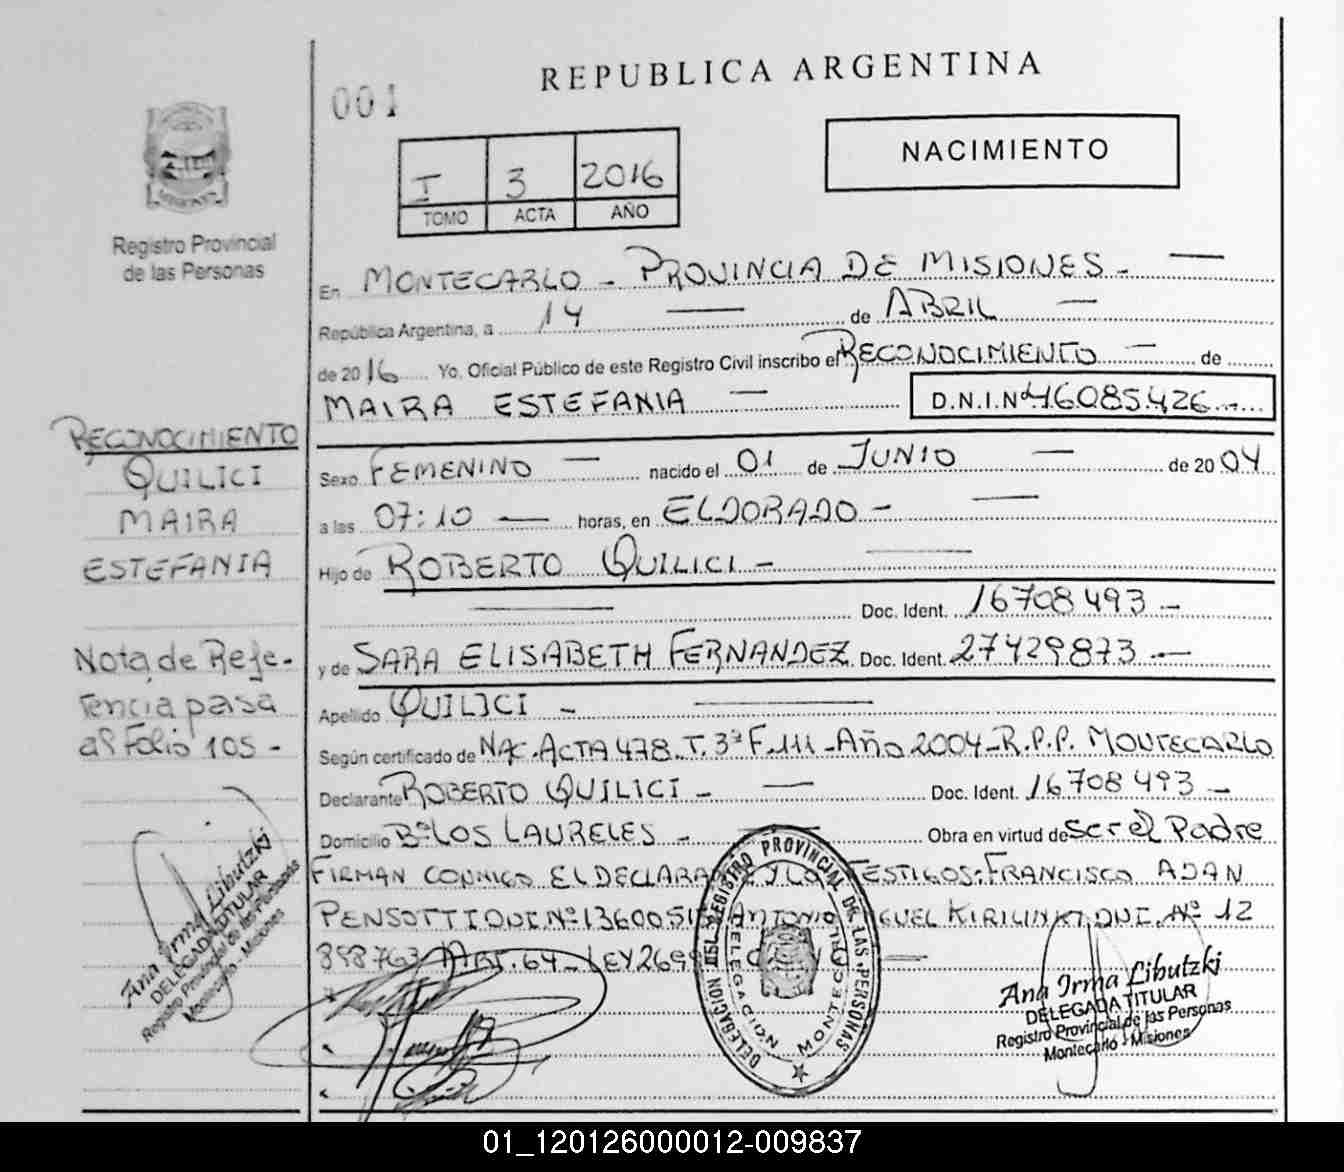 REPUBLICA ARGENTINA
001
NACIMIENTO
I 3 2016
TOMO ACTA AÑO
Registro Provincial
de las Personas
En MONTECARLO - PROVINCIA DE MISIONES -
República Argentina, a 14 de ABRIL
de 2016 Yo, Oficial Público de este Registro Civil inscribo el RECONOCIMIENTO de
MAIRA ESTEFANIA D.N.I.Nº 46085426
Sexo FEMENINO nacido el 01 de JUNIO de 2004
a las 07:10 horas, en ELDORADO -
Hijo de ROBERTO QUILICI -
Doc. Ident. 16708493 -
y de SARA ELISABETH FERNANDEZ Doc. Ident. 27429873 -
Apellido QUILICI -
Según certificado de NAC. ACTA 478. T. 3º F. 111 - Año 2004 - R.P.P. MONTECARLO
Declarante ROBERTO QUILICI - Doc. Ident. 16708493 -
Domicilio Bº LOS LAURELES - Obra en virtud de ser el Padre
FIRMAN CONMIGO EL Y TESTIGOS: FRANCISCO ADAN
PENSOTTI DNI. Nº ANTONIO KIRILINKI DNI. Nº 12
898763 ART. 64 - LEY
RECONOCIMIENTO
QUILICI
MAIRA
ESTEFANIA
Nota de Refe-
rencia pasa
al Folio 105 -
Ana Irma Libutzki
DELEGADA TITULAR
Registro Provincial de las Personas
Montecarlo - Misiones
DELEGACION DEL REGISTRO PROVINCIAL DE LAS PERSONAS
DELEGACION MONTECARLO
Ana Irma Libutzki
DELEGADA TITULAR
Registro Provincial de las Personas
Montecarlo - Misiones
01_120126000012-009837